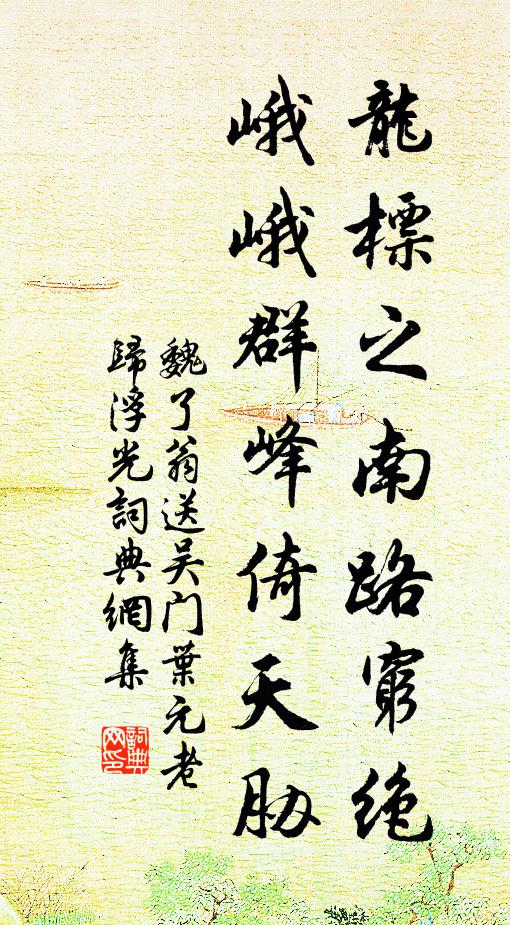 龍標之南路窮絶
峨峨群峰倚天胁
魏了翁送吴门葉元老
歸浮光詞典網集
詞典网印